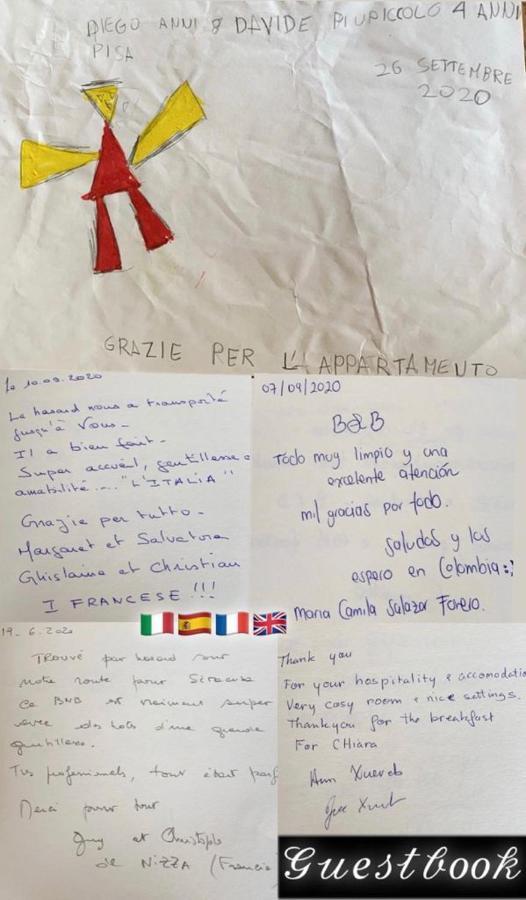 DIEGO ANNI 8 DAVIDE PIU PICCOLO 4 ANNI
PISA
26 SETTEMBRE
2020
GRAZIE PER L'APPARTAMENTO
le 10.09.2020
Le hasard nous a transporté
jusqu'à vous -
Il a bien fait -
Super accueil, gentillesse
amabilité... "L'ITALIA"
Grazie per tutto -
Margaret et Salvatore
Ghislaine et Christian
I FRANCESE !!!
07/09/2020
B&B
Todo muy limpio y una
excelente atención
mil gracias por todo.
saludos y los
espero en Colombia :)
Maria Camila Salazar Forero.
19.6.2020
TROUVÉ par hasard sur
notre route pour Siracusa
ce BNB est vraiment super
avec des hôtes d'une grande
gentillesse.
Très professionnels, tout était parf
Merci pour tout
Guy et Christophe
de NIZZA (Francia
Thank you
For your hospitality & accomodatio
Very cosy room & nice settings.
Thankyou for the breakfast
For CHiara
Xuereb
Guestbook